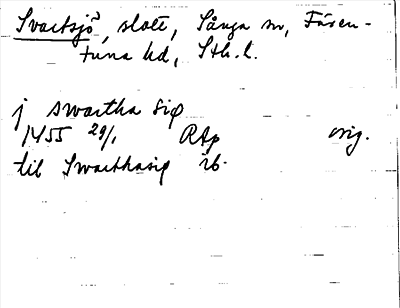 Svartsjö, slott, Sånga sn, Fären-
tuna hd, Sth.l.
j swartha siø
1455 29/1 RAp orig.
til Swarthasiø ib.